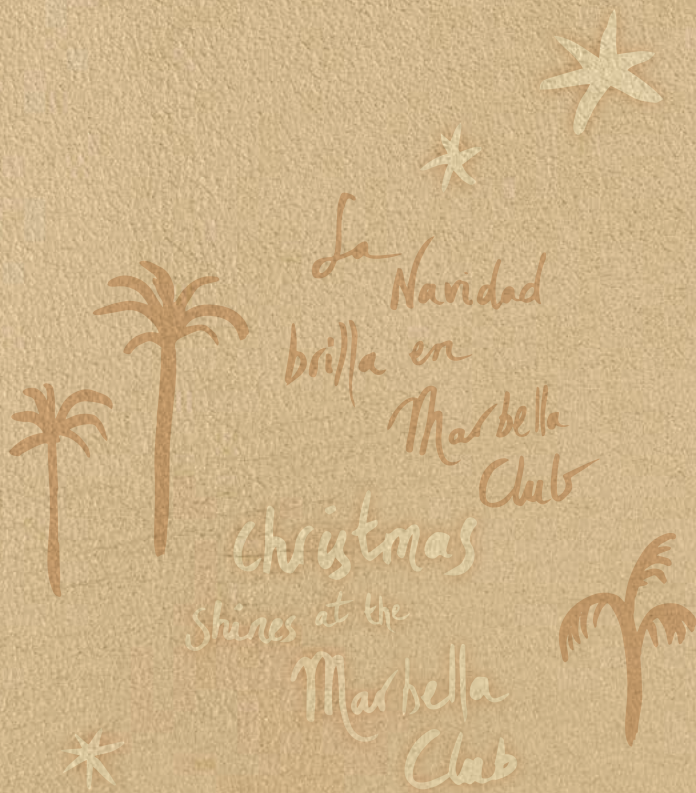 La
Navidad
brilla en
Marbella
Club
christmas
shines at the
Marbella
Club